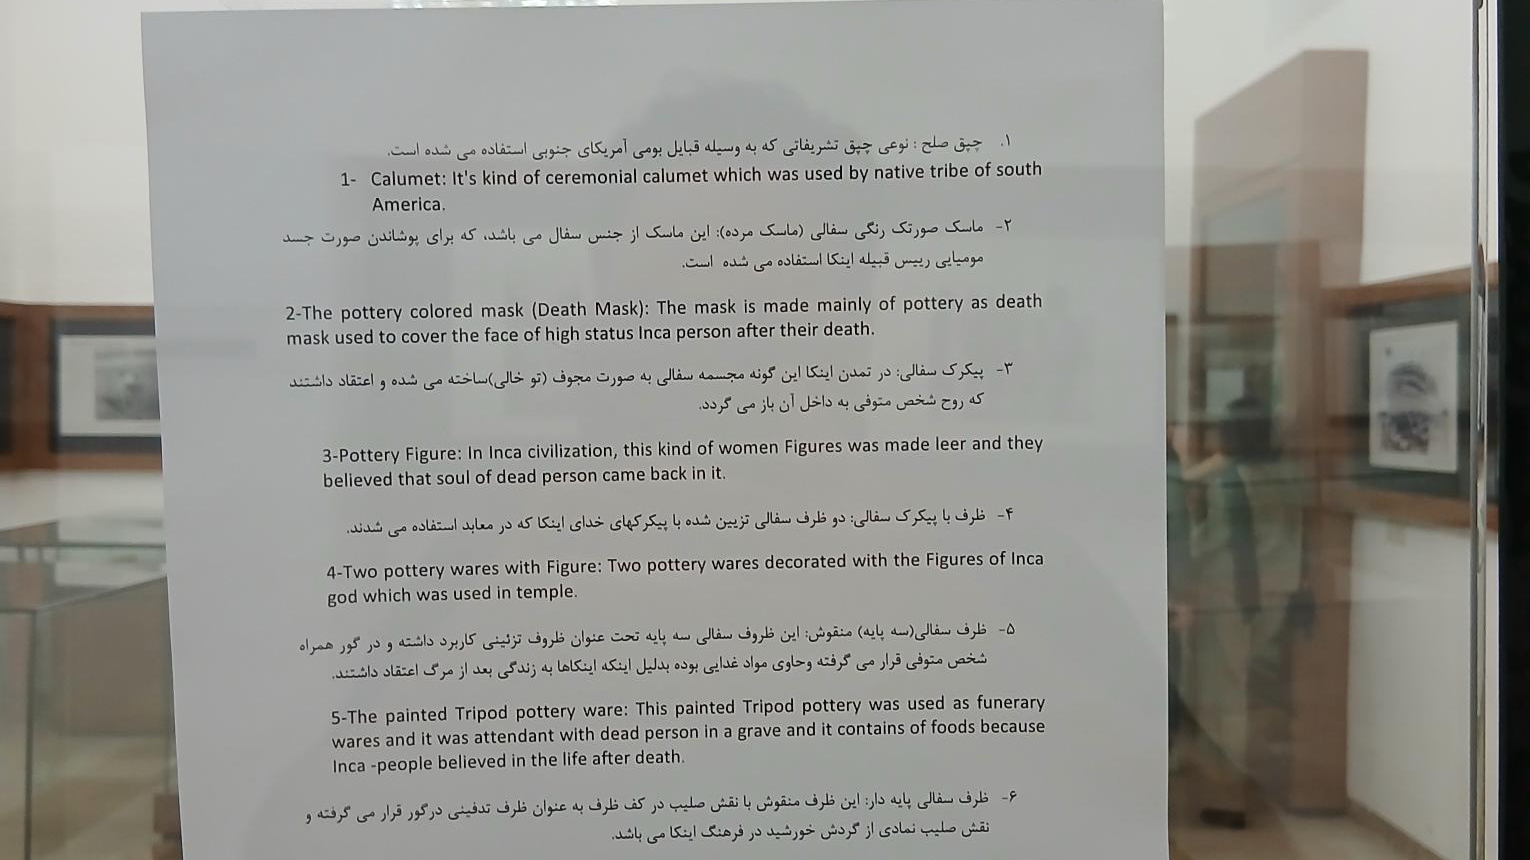 ۱. چپق صلح : نوعی چپق تشریفاتی که به وسیله قبایل بومی آمریکای جنوبی استفاده می شده است.
1- Calumet: It's kind of ceremonial calumet which was used by native tribe of south
America.
۲- ماسک صورتک رنگی سفالی (ماسک مرده): این ماسک از جنس سفال می باشد، که برای پوشاندن صورت جسد
مومیایی رییس قبیله اینکا استفاده می شده است.
2-The pottery colored mask (Death Mask): The mask is made mainly of pottery as death
mask used to cover the face of high status Inca person after their death.
۳- پیکرک سفالی: در تمدن اینکا این گونه مجسمه سفالی به صورت مجوف (تو خالی)ساخته می شده و اعتقاد داشتند
که روح شخص متوفی به داخل آن باز می گردد.
3-Pottery Figure: In Inca civilization, this kind of women Figures was made leer and they
believed that soul of dead person came back in it.
۴- ظرف با پیکرک سفالی: دو ظرف سفالی تزیین شده با پیکرکهای خدای اینکا که در معابد استفاده می شدند.
4-Two pottery wares with Figure: Two pottery wares decorated with the Figures of Inca
god which was used in temple.
۵- ظرف سفالی(سه پایه) منقوش: این ظروف سفالی سه پایه تحت عنوان ظروف تزئینی کاربرد داشته و در گور همراه
شخص متوفی قرار می گرفته وحاوی مواد غدایی بوده بدلیل اینکه اینکاها به زندگی بعد از مرگ اعتقاد داشتند.
5-The painted Tripod pottery ware: This painted Tripod pottery was used as funerary
wares and it was attendant with dead person in a grave and it contains of foods because
Inca -people believed in the life after death.
۶- ظرف سفالی پایه دار: این ظرف منقوش با نقش صلیب در کف ظرف به عنوان ظرف تدفینی درگور قرار می گرفته و
نقش صلیب نمادی از گردش خورشید در فرهنگ اینکا می باشد.